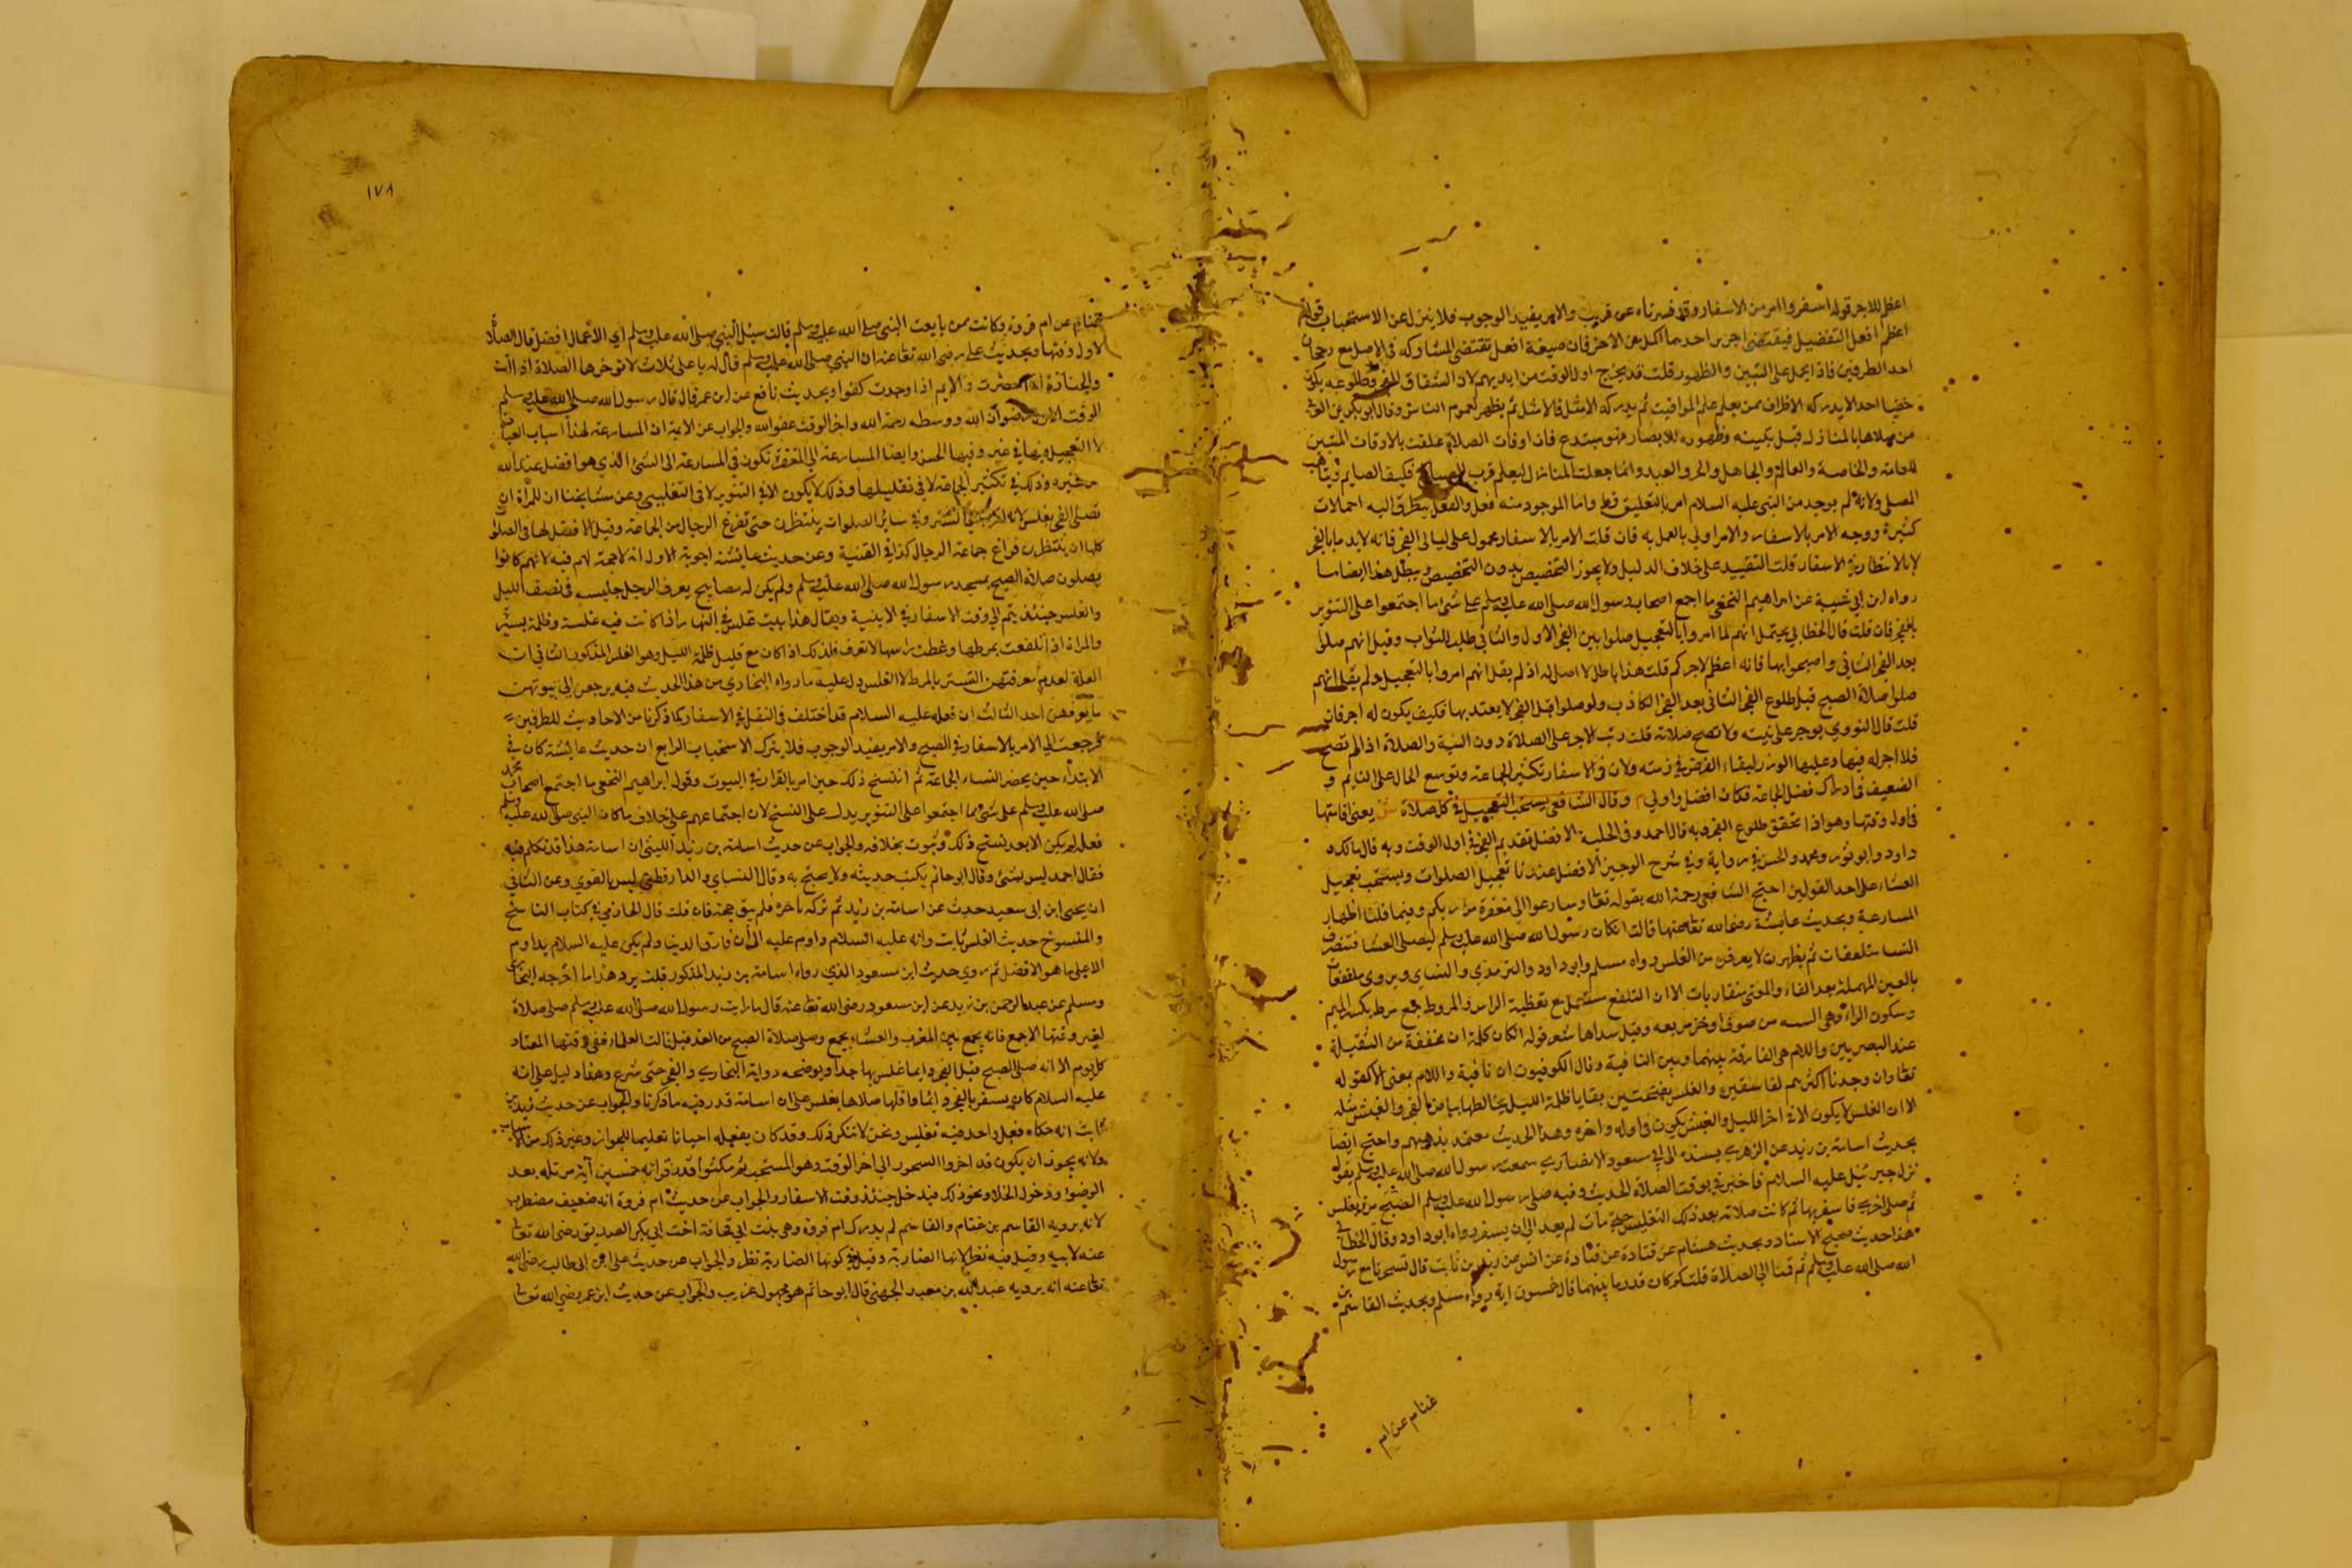 اعظم للاجر قوله اسفروا امر من الاسفار وقد فسرناه عن قريب والامر يفيد الوجوب فلا ينزل عن الاستحباب قوله
اعظم افعل التفضيل فيقتضي اجرين احدهما اكمل من الاخر فان صيغة افعل تقتضي المشاركة في الاصل مع رجحان
احد الطرفين فاذا يحمل على التبين والظهور قلت قد يخرج اول الوقت من ايديهم لان انشقاق الفجر وطلوعه يكون
خفيا احد الا يدركه الاظراف ممن يعلم علم المواقيت ثم يدركه الامثل فالامثل ثم يظهر لعموم الناس وقال ابو بكر بن العربي
من صلاها بالمنازل قبل تبينه وظهوره للابصار فهو مبتدع فان اوقات الصلاة علقت بالاوقات المتبين
للعامة والخاصة والعالم والجاهل والحر والعبد وانما جعلت المنازل ليعلم قرب الصباح فكيف الصايم ويتاهب
المصلي ولانه لم يوجد من النبي عليه السلام امر بالتغليس قط واما الموجود منه فعل والفعل يتطرق اليه احتمالات
كثيرة ووجه الامر بالاسفار والامر اولي بالعمل به فان قلت الامر بالاسفار محمول على ليالي القمر فانه لا بد
لا بالانتظار في الاسفار قلت التقييد على خلاف الدليل ولا يجوز التخصيص بدون المخصص ويبطل هذا ايضا ما
رواه ابن ابي شيبة عن ابراهيم النخعي ما اجمع اصحاب رسول الله صلى الله عليه وسلم على شئ ما اجتمعوا على التنوير
بالفجر فان قلت قال الخطابي يحتمل انهم لما امروا بالتعجيل صلوا بين الفجر الاول والثاني طلب الثواب وقيل انهم صلوا
بعد الفجر الثاني واصبحوا بها فانه اعظم لاجركم قلت هذا باطل لا اصل له اذ لم يقل انهم امروا بالتعجيل ولم يقل انهم
صلوا صلاة الصبح قبل طلوع الفجر الثاني بعد الفجر الكاذب ولو صلوا قبل الفجر لا يعتد بها فكيف يكون له اجر فان
قلت قال النووي يوجر على نيته ولا تصح صلاته قلت رتب الاجر على الصلاة دون النية والصلاة اذا لم تصح
فلا اجر له فيها وعليها الوزر لبقاء الفرض في ذمته ولان في الاسفار تكثير الجماعة وتوسيع الحال على النايم و
الضعيف في ادراك فضل الجماعة فكان افضل واولي م وقال الشافعي يستحب التعجيل في كل صلاة ش يعني اقامتها
في اول وقتها وهو اذا تحقق طلوع الفجر وبه قال احمد وفي الحلية الافضل تقديم الفجر في اول الوقت وبه قال مالك و
داود وابو ثور ومحمد والحسن في رواية وفي شرح الوجيز الافضل عندنا تعجيل الصلوات ويستحب تعجيل
العشاء على احد القولين احتج الشافعي رحمة الله بقوله تعالى وسارعوا الي مغفرة من ربكم وفيما قلنا اظهار
المسارعة وبحديث عايشة رضي الله تعالى عنها قالت ان كان رسول الله صلى الله عليه وسلم ليصلي فتنصرف
النسا متلفعات ثم يظهرن لا يعرفن من الغلس رواه مسلم وابو داود والترمذي والنسائي ويروي متلففات
بالعين المهملة بعد الفاء والمعني متقاربات الا ان التلفع مستعمل مع تغطية الراس والمروط جمع مرط بكسر الميم
وسكون الراء وهي البسه من صوف او خز مربعه وقيل سداها شعر قوله ان كان كلمة ان مخففة من الثقيلة
عند البصريين واللام هي الفارقة بينهما وبين النافية وقال الكوفيون ان نافية واللام بمعني الا كقوله
تعالى وان وجدنا اكثرهم لفاسقين والغلس بفتحتين بقايا ظلمة الليل يخالطها بياض الفجر والغبش مثله
الا ان الغلس لا يكون الا في اخر الليل والغبش يكون في اوله واخره وهذا الحديث معتمد مذهبهم واحتج ايضا
بحديث اسامة بن زيد عن الزهري يسنده الى ابي مسعود الانصاري سمعت رسول الله صلى الله عليه وسلم يقول
نزل جبرئيل عليه السلام فاخبرني بوقت الصلاة الحديث وفيه صلى رسول الله عليه وسلم الصبح مرة بغلس
ثم صلى اخري فاسفر بها ثم كانت صلاته بعد ذلك التغليس حتى مات لم يعد الي ان يسفر رواه ابو داود وقال الخطابي
هذا حديث صحيح الاسناد وبحديث هشام عن قتادة عن انس عن زيد بن ثابت قال تسحرنا مع رسول
الله صلى الله عليه وسلم ثم قمنا الي الصلاة قلت كم كان قدر ما بينهما قال خمسون اية رواه مسلم وبحديث القاسم بن
غنام عن ام
١٧٨
غنام عن ام فروة وكانت ممن بايعت النبي صلى الله عليه وسلم قالت سئل النبي صلى الله عليه وسلم اي الاعمال افضل قال الصلاة
لاول وقتها وبحديث علي رضي الله تعالى عنه ان النبي صلى الله عليه وسلم قال له يا على ثلاث لا توخرها الصلاة اذا اتت
والجنازة اذا حضرت والايم اذا وجدت كفوا وبحديث نافع عن ابن عمر قال قال رسول الله صلى الله عليه وسلم
الوقت الاول رضوان الله ووسطه رحمة الله واخر الوقت عفو الله والجواب عن الاية ان المسارعة
لا التعجيل وايضا المسارعة الي المغفرة تكون في المسارعة الى الشئ الذي هو افضل عند الله
من غيره وذلك في تكثير الجماعة لا في تقليلها وذلك لا يكون الا في التنوير لا في التغليس وعن مشايخنا ان للمراة ان
تصلي الفجر بغلس لانه وفي سائر الصلوات ينتظرن حتى تفرغ الرجال من الجماعة وقيل الافضل لها في الصلوات
كلها ان ينتظرن فراغ جماعة الرجال كذا في القنية وعن حديث عائشة اجوبة الاول انه لا حجة لهم فيه لانهم كانوا
يصلون صلاة الصبح بمسجد رسول الله صلى الله عليه وسلم ولم يكن له مصابيح يعرف الرجل جليسه في نصف الليل
والغلس حينئذ يتم الي وقت الاسفار في الابنية ويقال هذا بيت غلس في النهار اذا كانت فيه غلسة وظلمة يسيرة
والمراة اذا تلفعت بمرطها وغطت راسها لا تعرف فلذلك اذا كان مع قليل ظلمة الليل وهو الغلس المذكور الثاني ان
العلة لعدم معرفتهن التستر بالمرط لا الغلس دل عليه ما رواه البخاري من هذا الحديث فيه يرجعن الى بيوتهن
ما يعرفهن احد الثالث ان فعله عليه السلام قد اختلف في النقل في الاسفار كما ذكرنا من الاحاديث للطرفين
فرجعت الي الامر بالاسفار في الصبح والامر يفيد الوجوب فلا يترك الاستحباب الرابع ان حديث عايشة كان في
الابتداء حين يحضر النساء الجماعة ثم انتسخ ذلك حين امر بالقرار في البيوت وقول ابراهيم النخعي ما اجتمع اصحاب محمد
صلى الله عليه وسلم على شئ ما اجتمعوا على التنوير يدل على النسخ لان اجتماعهم على خلاف ما كان النبي صلى الله عليه وسلم
فعله لم يكن الا بعد نسخ ذلك وثبوت بخلافه والجواب عن حديث اسامة بن زيد الليثي ان اسامة هذا قد تكلم فيه
فقال احمد ليس بشئ وقال ابو حاتم يكتب حديثه ولا يحتج به وقال النسائي والدارقطني ليس بالقوي وعن الثاني
ان يحيى ابن ابي سعيد حدث عن اسامة بن زيد ثم تركه باخره فلم يبق حجة فان قلت قال الحازمي في كتاب الناسخ
والمنسوخ حديث الغلس ثابت وانه عليه السلام داوم عليه الى ان فارق الدنيا ولم يكن عليه السلام يداوم
الا على ما هو الافضل ثم روي حديث ابن مسعود الذي رواه اسامة بن زيد المذكور قلت يرد هذا ما اخرجه البخاري
ومسلم عن عبد الرحمن بن زيد عن ابن مسعود رضي الله تعالى عنه قال ما رايت رسول الله صلى الله عليه وسلم صلى صلاة
لغير وقتها الا جمع فانه يجمع بين المغرب والعشاء بجمع وصلى صلاة الصبح من الغد قبل قالت العلماء ففي وقتها المعتاد
كل يوم الا انه صلى الصبح قبل الفجر وانما غلس بها جدا ويوضحه رواية البخاري والفجر حتى شرع وهذا دليل على انه
عليه السلام كان يسفر بالفجر دائما وقلما صلاها بغلس على ان اسامة قدر فيه ما ذكرنا والجواب عن حديث زيد بن
ثابت انه حكاه فعل واحد فيه تغليس ونحن لا ننكر ذلك وقد كان يفعله احيانا تعليما للجواز وغير ذلك من الاسباب
ولانه يجوز ان يكون قد اخروا السحور الي اخر الوقت وهو المستحب ثم مكثوا قدر قراءة خمسين آية من تله بعد
الوضوء ودخول الخلاء ونحو ذلك فيدخل حينئذ وقت الاسفار والجواب عن حديث ام فروة انه ضعيف مضطرب
لانه يرويه القاسم بن غنام والقاسم لم يدرك ام فروة وهي بنت ابي قحافة اخت ابي بكر الصديق رضي الله تعالى
عنه لابيه وقيل فيه نظر لانها انصارية وقيل في كونها انصارية نظر والجواب عن حديث على ابن ابي طالب رضي الله
تعالى عنه انه يرويه عبد الله بن معبد الجهني قال ابو حاتم هو مجهول غريب والجواب عن حديث ابن عمر رضي الله تعالى